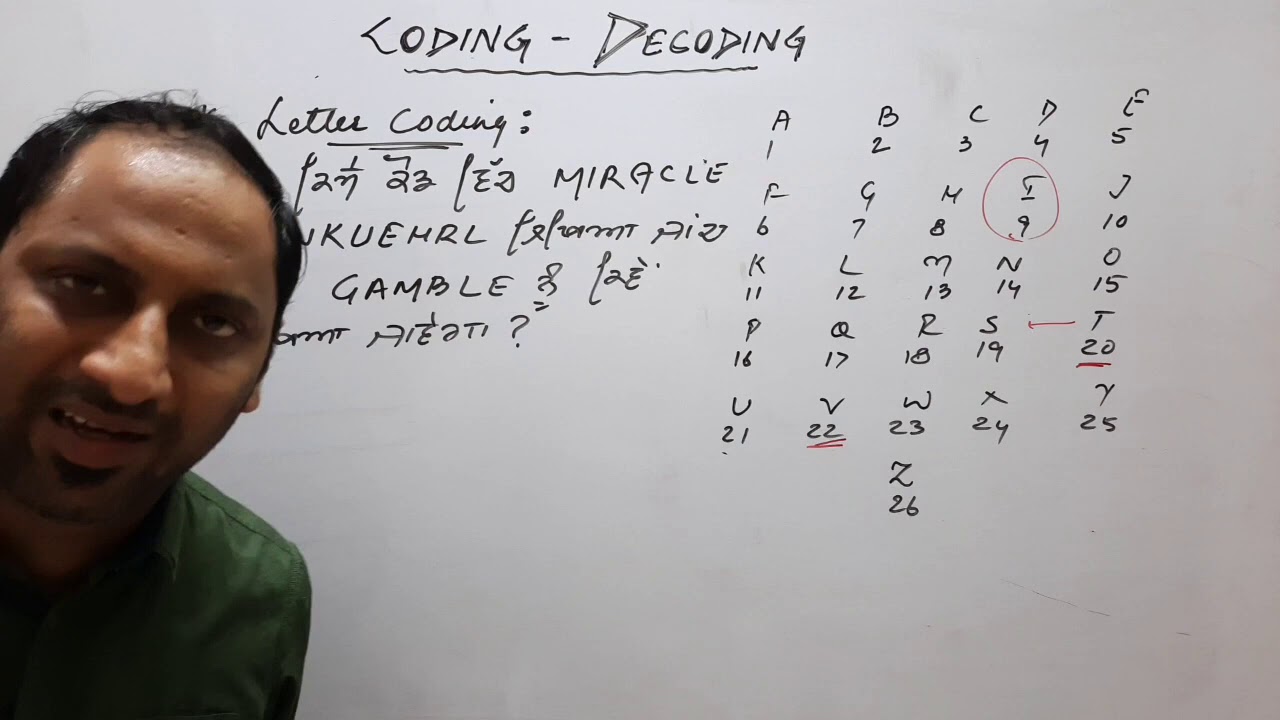 CODING - DECODING
Letter Coding:
ਕਿਸੇ ਕੋਡ ਵਿੱਚ MIRACLE
NKUEHRL ਲਿਖਿਆ ਜਾਂਦਾ
GAMBLE ਨੂੰ ਕਿਵੇਂ
ਜਾਵੇਗਾ ?
A B C D E
1 2 3 4 5
F G H I J
6 7 8 9 10
K L M N O
11 12 13 14 15
P Q R S T
16 17 18 19 20
U V W X Y
21 22 23 24 25
Z
26